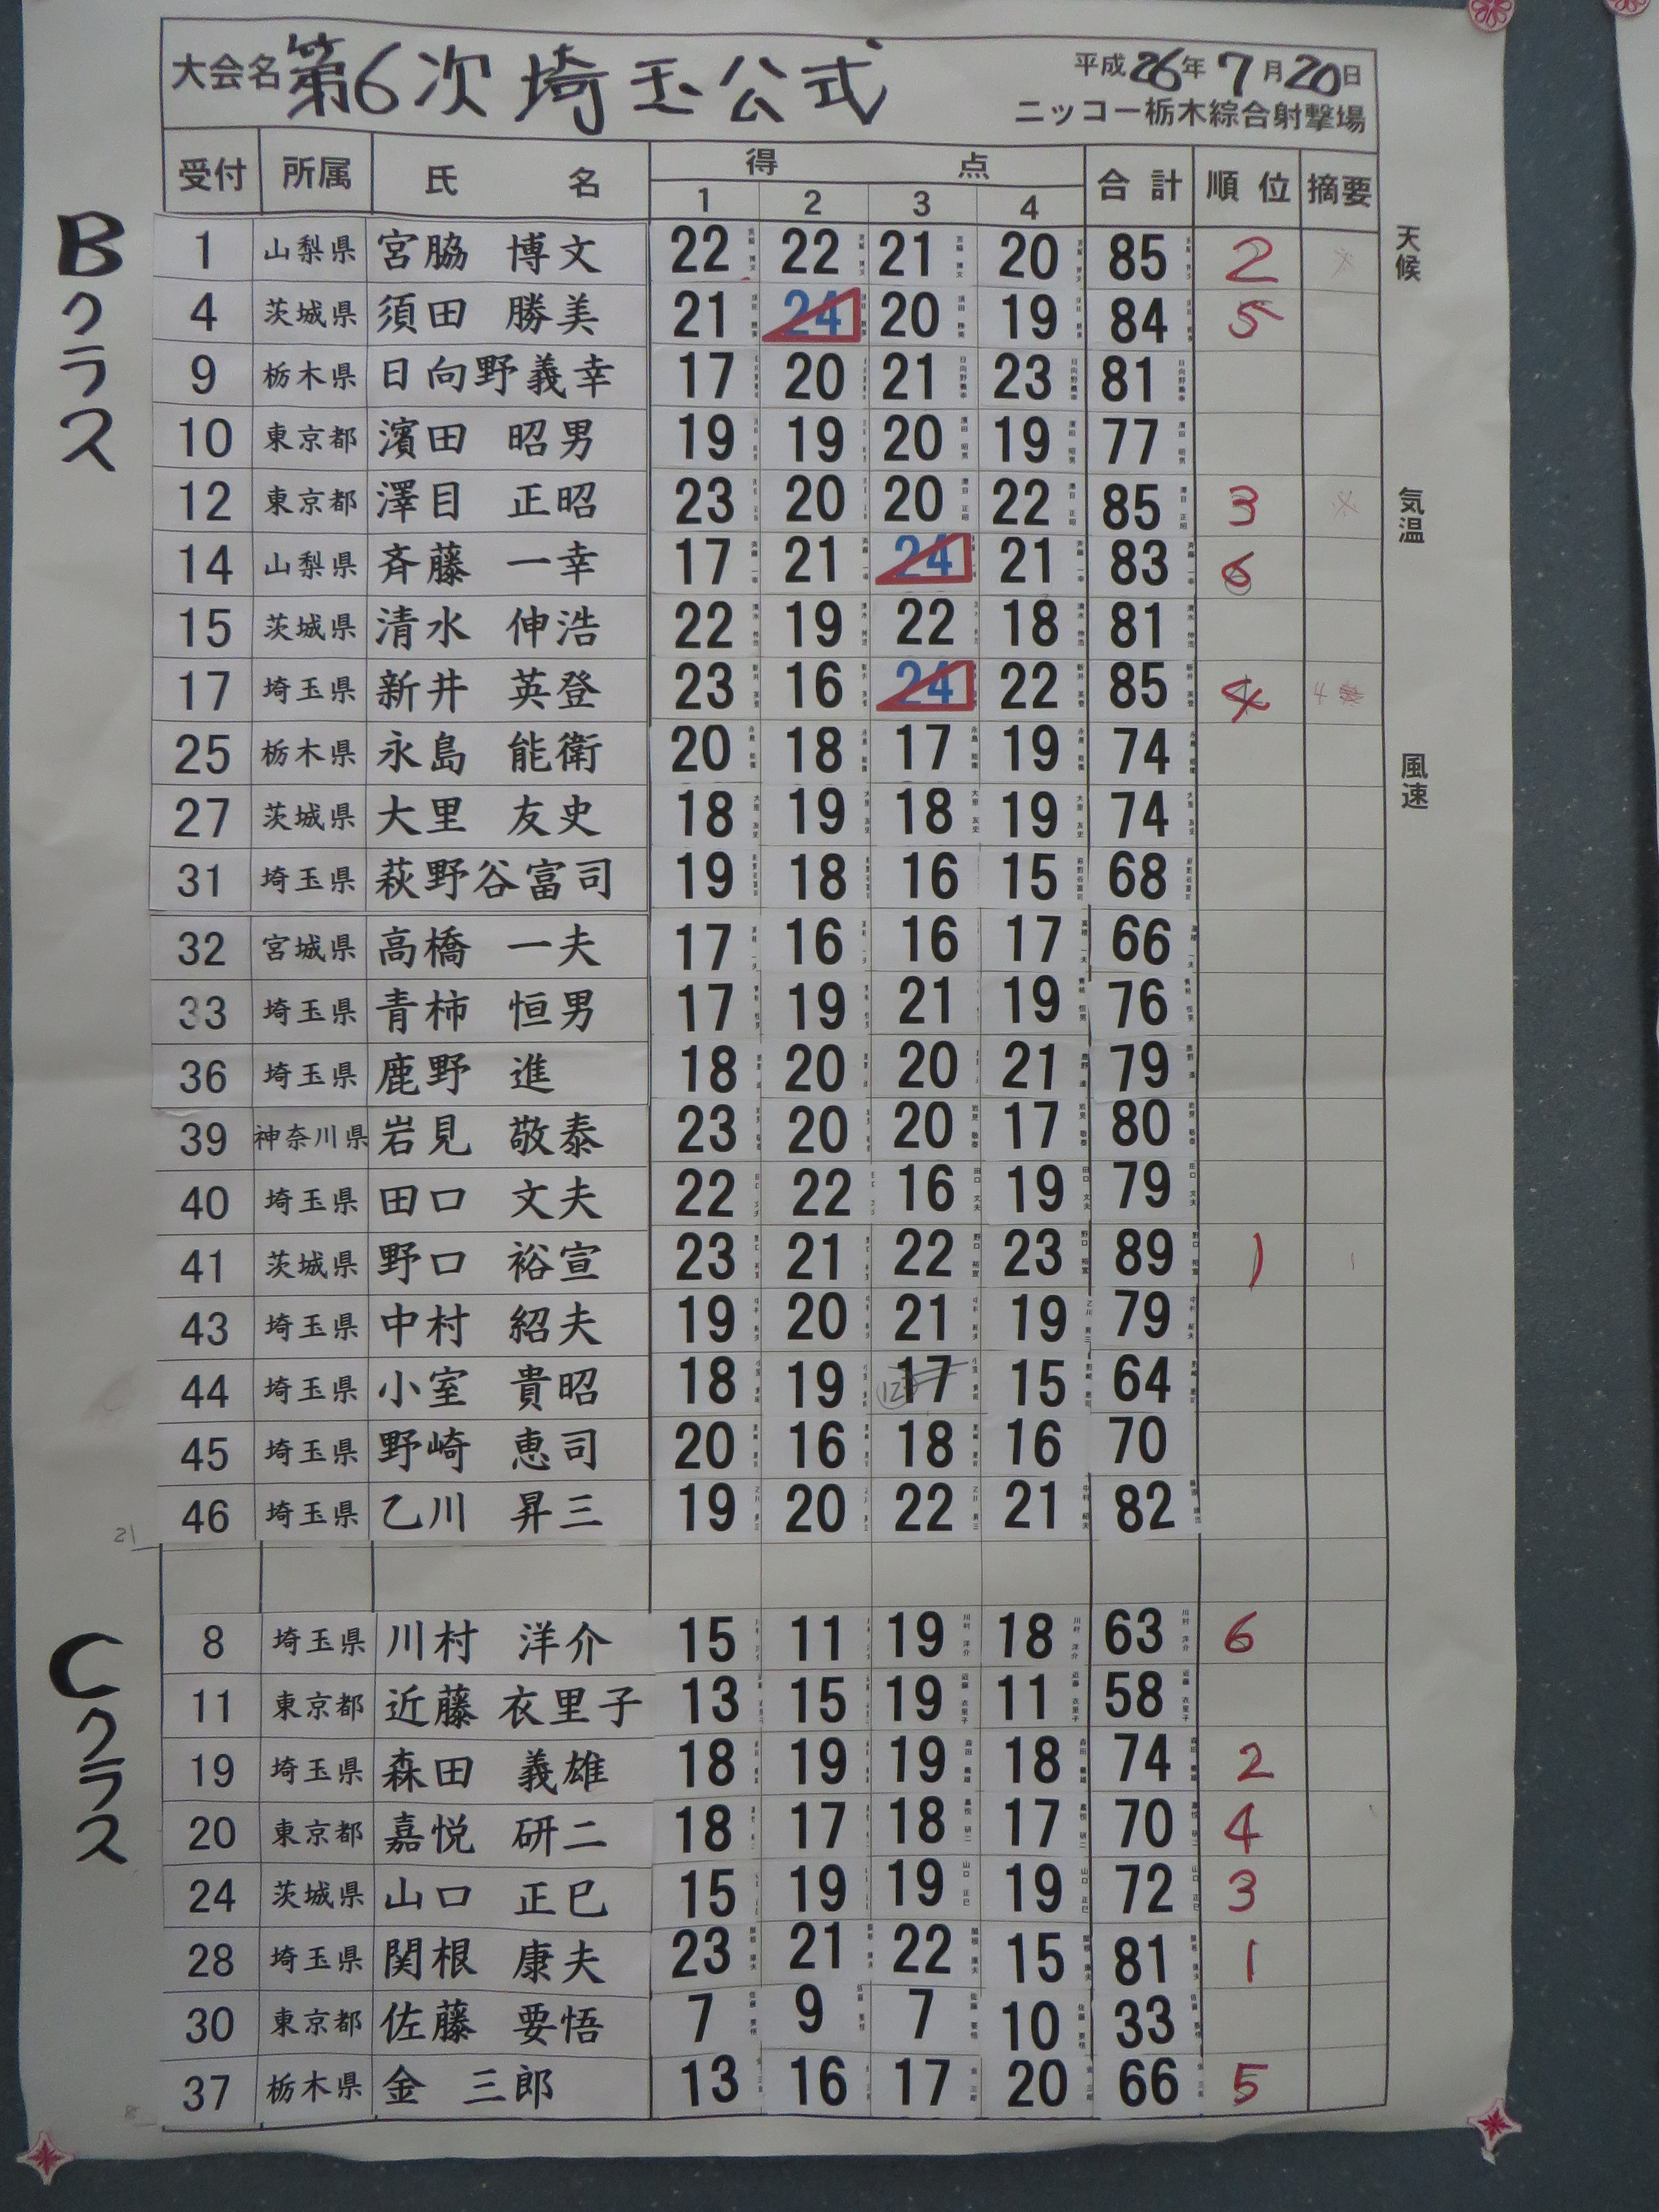 大会名 第6次埼玉公式 平成26年7月20日
ニッコー栃木綜合射撃場
受付 所属 氏 名 得 点 合計 順位 摘要
1 2 3 4
Bクラス
1 山梨県 宮脇 博文 22 22 21 20 85 2
4 茨城県 須田 勝美 21 24 20 19 84 5
9 栃木県 日向野義幸 17 20 21 23 81
10 東京都 濱田 昭男 19 19 20 19 77
12 東京都 澤目 正昭 23 20 20 22 85 3
14 山梨県 斉藤 一幸 17 21 24 21 83 6
15 茨城県 清水 伸浩 22 19 22 18 81
17 埼玉県 新井 英登 23 16 24 22 85 4 4
25 栃木県 永島 能衛 20 18 17 19 74
27 茨城県 大里 友史 18 19 18 19 74
31 埼玉県 萩野谷富司 19 18 16 15 68
32 宮城県 高橋 一夫 17 16 16 17 66
33 埼玉県 青柿 恒男 17 19 21 19 76
36 埼玉県 鹿野 進 18 20 20 21 79
39 神奈川県 岩見 敬泰 23 20 20 17 80
40 埼玉県 田口 文夫 22 22 16 19 79
41 茨城県 野口 裕宣 23 21 22 23 89 1 1
43 埼玉県 中村 紹夫 19 20 21 19 79
44 埼玉県 小室 貴昭 18 19 12 17 15 64
45 埼玉県 野崎 恵司 20 16 18 16 70
46 埼玉県 乙川 昇三 19 20 22 21 82
21
Cクラス
8 埼玉県 川村 洋介 15 11 19 18 63 6
11 東京都 近藤 衣里子 13 15 19 11 58
19 埼玉県 森田 義雄 18 19 19 18 74 2
20 東京都 嘉悦 研二 18 17 18 17 70 4
24 茨城県 山口 正巳 15 19 19 19 72 3
28 埼玉県 関根 康夫 23 21 22 15 81 1
30 東京都 佐藤 要悟 7 9 7 10 33
37 栃木県 金 三郎 13 16 17 20 66 5
8
天候
気温
風速